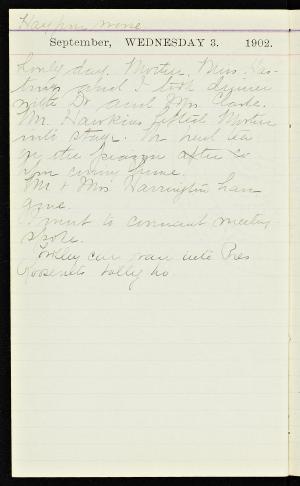 September, WEDNESDAY 3. 1902.
Lovely day. Mother, Miss Has-
tings and I took dinner
with Dr and Mrs Clarke.
Mr. Hawkins fetched Mother
into stage. We had tea
on the piazza after
coming home.
Mr & Mrs Harrington have
gone.
I went to covenant meeting
spoke.
Trolley car ran into Pres
Roosevelts tally ho